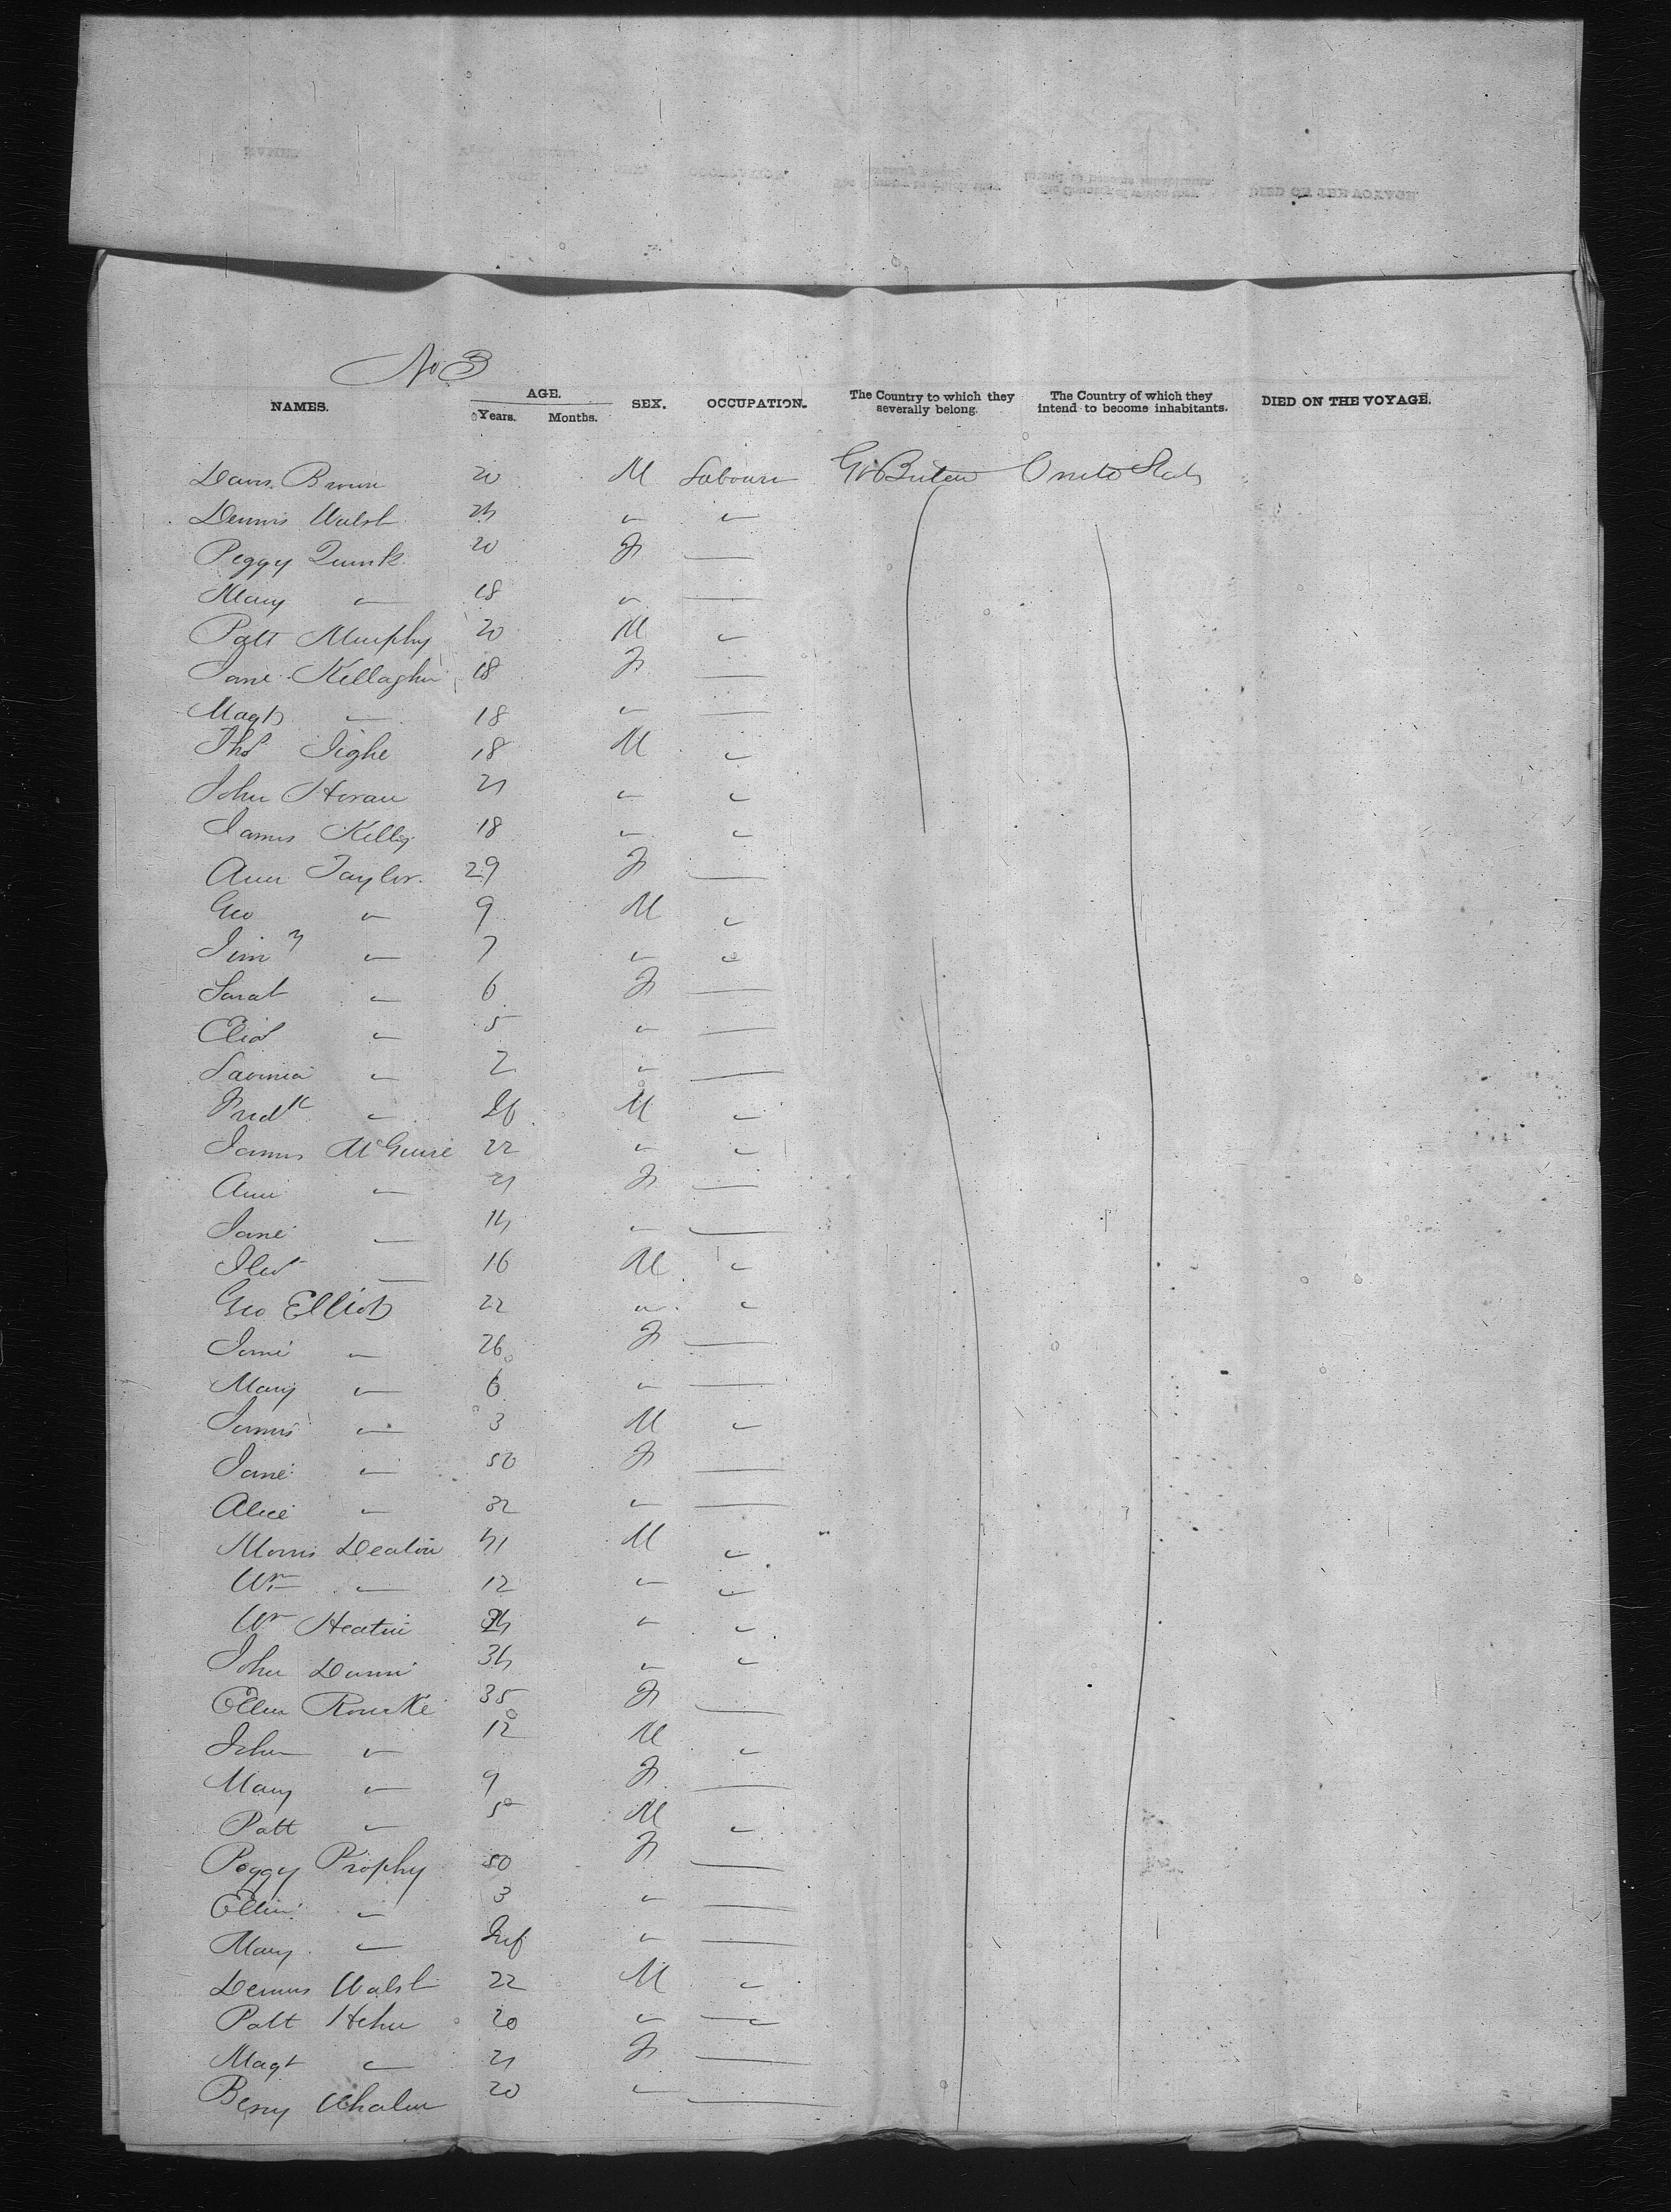 No 3
NAMES. AGE. Years. Months. SEX. OCCUPATION. The Country to which they severally belong. The Country of which they intend to become inhabitants. DIED ON THE VOYAGE.
Brown 20 M Labourer Gt Britain United States
Dennis Walsh 24 " "
Peggy 20 F —
Mary " 18 " —
Patt Murphy 20 M "
Jane Kellaghn 18 F —
Magt " 18 " —
Thos Tighe 18 M "
John Horan 21 " "
James Kelly 18 " "
Ann Taylor. 29 F —
Geo " 9 M "
" 7 " "
Sarah " 6 F —
Eliz " 5 " —
Lavinia " 2 " —
Fredk " Inf M "
James McGuire 22 " "
Ann " 21 F —
Jane " 14 " —
— 16 M "
Geo Elliott 22 " "
Jane " 26 F —
Mary " 6 " —
James " 3 M "
Jane " 50 F —
Alice " 32 " —
Morris 41 M "
Wm " 12 " "
Wm " "
John Dunn 34 " "
Ellen Rourke 35 F —
John " 12 M "
Mary " 9 F —
Patt " 5 M "
Peggy Prophy F —
Ellen " 3 " —
Mary " Inf " —
Dennis Walsh 22 M "
Patt Hehu 20 " "
Magt " 21 F —
Whalen 20 " —